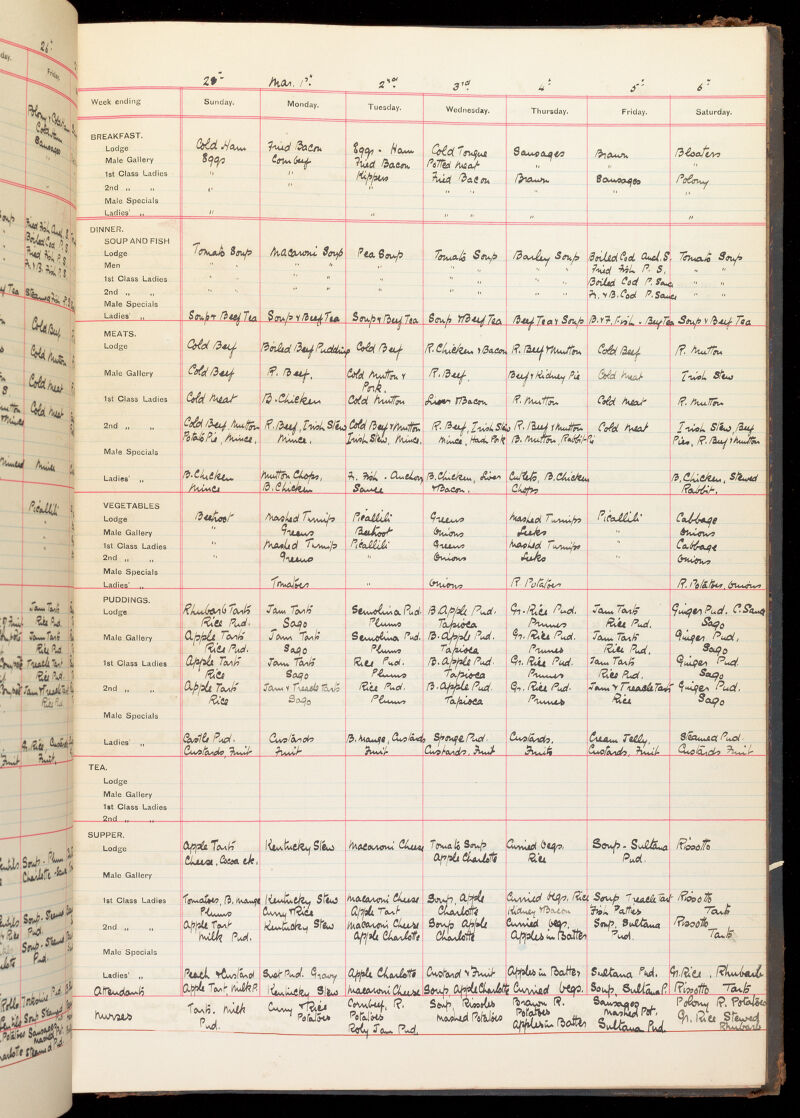 28th Mar. 1st 2nd 3rd 4th 5th 6th
Week ending Sunday. Monday. Tuesday. Wednesday. Thursday. Friday. Saturday.
BREAKFAST.
Lodge Cold Ham Fried Bacon Eggs - Ham Cold Tongue Sausages Brawn Bloaters
Male Gallery Eggs Corn beef Fried Bacon Potted Meat " " "
1st Class Ladies " " Kippers Fried Bacon Brawn Sausages Polony
2nd " " " " " " "
Male Specials
Ladies' " " " " " " "
DINNER.
SOUP AND FISH
Lodge Tomato Soup Macaroni Soup Pea Soup Tomato Soup Barley Soup Boiled Cod Anch. S. Tomato Soup
Men " " " " " Fried Fish P. S. " "
1st Class Ladies " " " " " Boiled Cod P. Sauce " "
2nd " " " " " " " F. & B. Cod P. Sauce " "
Male Specials
Ladies' " Soup & Beef Tea Soup & Beef Tea Soup & Beef Tea Soup & Beef Tea Beef Tea & Soup B. & F. Fish - Beef Tea Soup & Beef Tea
MEATS.
Lodge Cold Beef Boiled Beef Pudding Cold Beef R. Chicken & Bacon R. Beef & Mutton Cold Beef R. Mutton
Male Gallery Cold Beef R. Beef. Cold Mutton & R. Beef. Beef & Kidney Pie Cold Meat Irish Stew
Pork.
1st Class Ladies Cold Meat B. Chicken Cold Mutton Liver & Bacon R. Mutton Cold Meat R. Mutton
2nd " " Cold Beef Mutton R. Beef, Irish Stew Cold Beef & Mutton R. Beef, Irish Stew R. Beef & Mutton Cold Meat Irish Stew, Beef
Potato Pie, Mince, Mince. Irish Stew, Mince, Mince, Hash Pork B. Mutton, Rabbit Pie Pies, R. Beef & Mutton
Male Specials
Ladies' " B. Chicken Mutton Chops, F. Fish - Anchovy B. Chicken, Liver Cutlets, B. Chicken B. Chicken, Stewed
Mince B. Chicken Sauce & Bacon. Chops Rabbit.
VEGETABLES
Lodge Beetroot Mashed Turnips Picallili Greens Mashed Turnips Picallili Cabbage
Male Gallery " Greens Beetroot Onions Leeks " Onions
1st Class Ladies " Mashed Turnips Picallili Greens Mashed Turnips " Cabbage
2nd " " " Greens " Onions Leeks " Onions
Male Specials
Ladies' " Tomatoes " Onions R Potatoes R. Potatoes, Onions
PUDDINGS.
Lodge Rhubarb Tarts Jam Tarts Semolina Pud. B. Apple Pud. Gr. Rice Pud. Jam Tarts Ginger Pud. C. Sauce
Rice Pud. Sago Plums Tapioca Prunes Rice Pud. Sago
Male Gallery Apple Tarts Jam Tarts Semolina Pud. B. Apple Pud. Gr. Rice Pud. Jam Tarts Ginger Pud.
Rice Pud. Sago Plums Tapioca Prunes Rice Pud. Sago
1st Class Ladies Apple Tarts Jam Tarts Rice Pud. B. Apple Pud. Gr. Rice Pud. Jam Tarts Ginger Pud
Rice Sago Plums Tapioca Prunes Rice Pud. Sago
2nd " " Apple Tarts Jam & Treacle Tarts Rice Pud. B. Apple Pud. Gr. Rice Pud. Jam & Treacle Tart Ginger Pud.
Rice Sago Plums Tapioca Prunes Rice Sago
Male Specials
Ladies' " Castle Pud. Custards B. Mange, Custards Sponge Pud. Custards. Cream Jelly, Steamed Pud
Custards, Fruit Fruit Fruit Custards. Fruit Fruits Custards. Fruit Custards Fruit
TEA.
Lodge
Male Gallery
1st Class Ladies
2nd " "
SUPPER.
Lodge Apple Tarts Kentucky Stew Macaroni Cheese Tomato Soup Curried Vegs. Soup - Sultana Rissotto
Cheese, Cocoa etc. Apple Charlotte Rice Pud.
Male Gallery
1st Class Ladies Tomatoes, B. Mange Kentucky Stew Macaroni Cheese Soup, Apple Curried Vegs. Rice Soup Treacle Tart Rissotto
Plums Curry & Rice Apple Tart Charlotte Kidney & Bacon Fish Patties Tarts
2nd " " Apple Tart Kentucky Stew Macaroni Cheese Soup Apple Curried Vegs. Soup, Sultana Rissotto
Milk Pud. Apple Charlotte Charlotte Apples in Batter Pud. Tarts
Male Specials
Ladies' " Peach & Custard Suet Pud. Gravy Apple Charlotte Custard & Fruit Apples in Batter Sultana Pud. Gr. Rice, Rhubarb
Attendants Apple Tart, Milk P. Kentucky Stew Macaroni Cheese Soup, Apple Charlotte Curried Vegs. Soup, Sultana P. Rissotto Tarts
Nurses Tarts. Milk Curry & Rice Cornbeef, R. Soup, Rissoles Brawn R. Sausages Polony R. Potatoes
Pud. Potatoes Potatoes Mashed Potatoes Potatoes Mashed Pot. Gr. Rice Stewed
Roly Jam Pud. Apples in Batter Sultana Pud Rhubarb